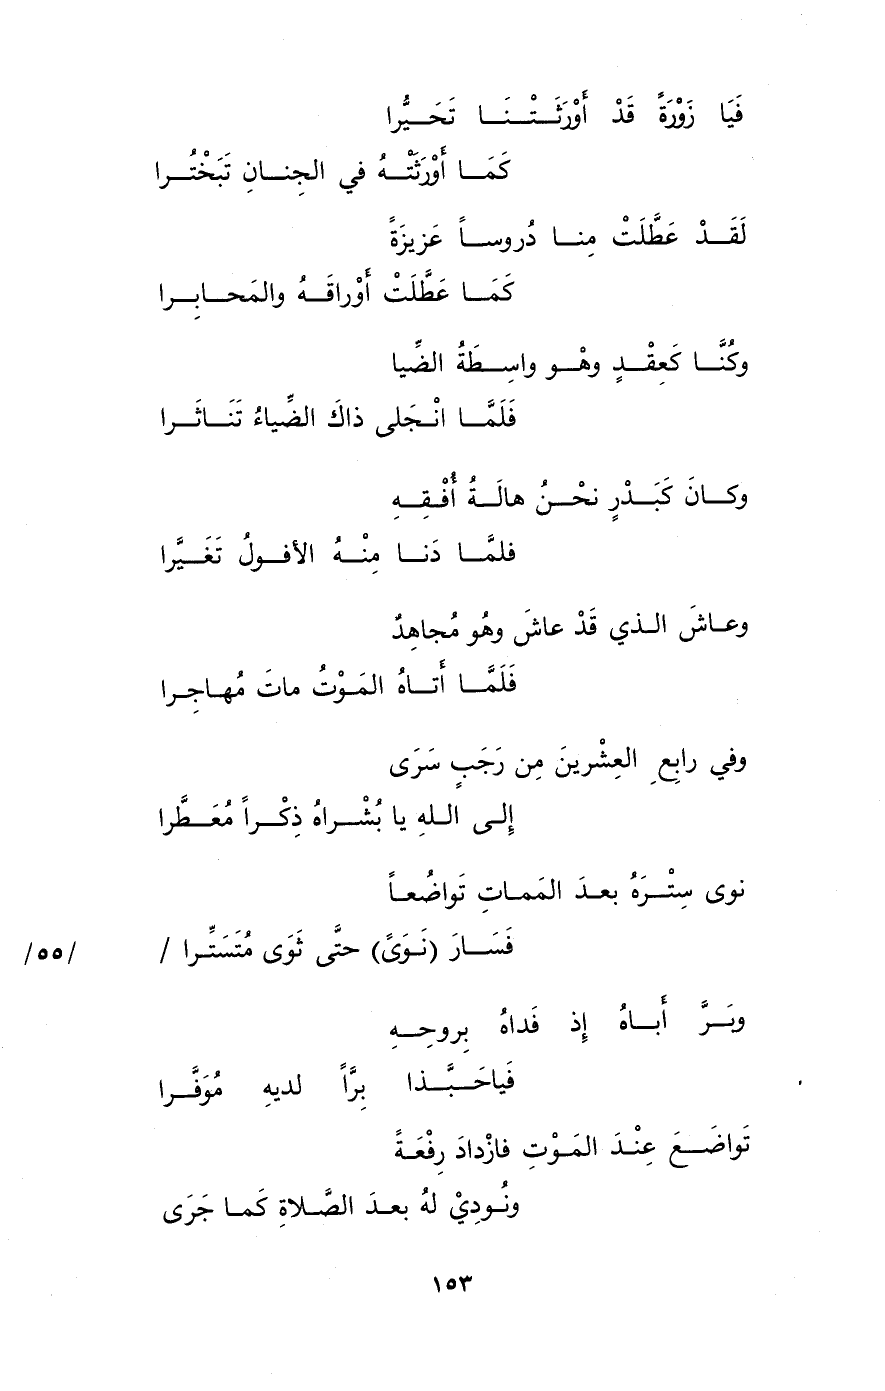 فَيَا زَوْرَةً قَدْ أَوْرَثَتْنَا تَحَيُّرا
كَمَا أَوْرَثَتْهُ في الجِنانِ تَبَخْتُرا
لَقَدْ عَطَّلَتْ مِنا دُروساً عَزيزَةً
كَمَا عَطَّلَتْ أَوْراقَهُ والمَحابِرا
وكُنَّا كَعِقْدٍ وهْو واسِطَةُ الضِّيا
فَلَمَّا انْجَلى ذاكَ الضِّياءُ تَنَاثَرا
وكانَ كَبَدْرٍ نحْنُ هالَةُ أُفْقِهِ
فلمَّا دَنا مِنْهُ الأفولُ تَغَيَّرا
وعاشَ الذي قَدْ عاشَ وهُو مُجاهِدٌ
فَلَمَّا أَتاهُ المَوْتُ ماتَ مُهاجِرا
وفي رابِعِ العِشْرينَ مِن رَجَبٍ سَرَى
إِلى اللهِ يا بُشْراهُ ذِكْراً مُعَطَّرا
نوى سِتْرَهُ بعدَ المَماتِ تَواضُعاً
فَسَارَ (نَوَىً) حتَّى ثَوَى مُتَسَتِّرا / /٥٥/
وبَرَّ أَباهُ إِذ فَداهُ بِروحِهِ
فَياحَبَّذا بِرَّاً لديهِ مُوَفَّرا
تَواضَعَ عِنْدَ المَوْتِ فازْدادَ رِفْعَةً
ونُودِيْ لهُ بعدَ الصَّلاةِ كَما جَرَى
١٥٣